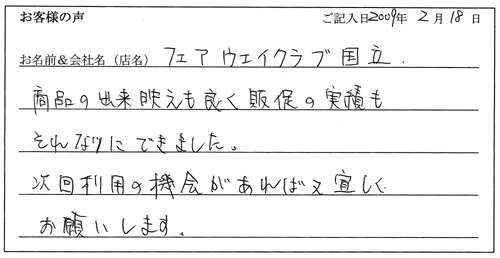 お客様の声 ご記入日2009年 2月 18日
お名前＆会社名（店名） フェアウェイクラブ国立.
商品の出来映えも良く販促の実績も
それなりにできました。
次回利用の機会があれば又宜しく
お願いします.